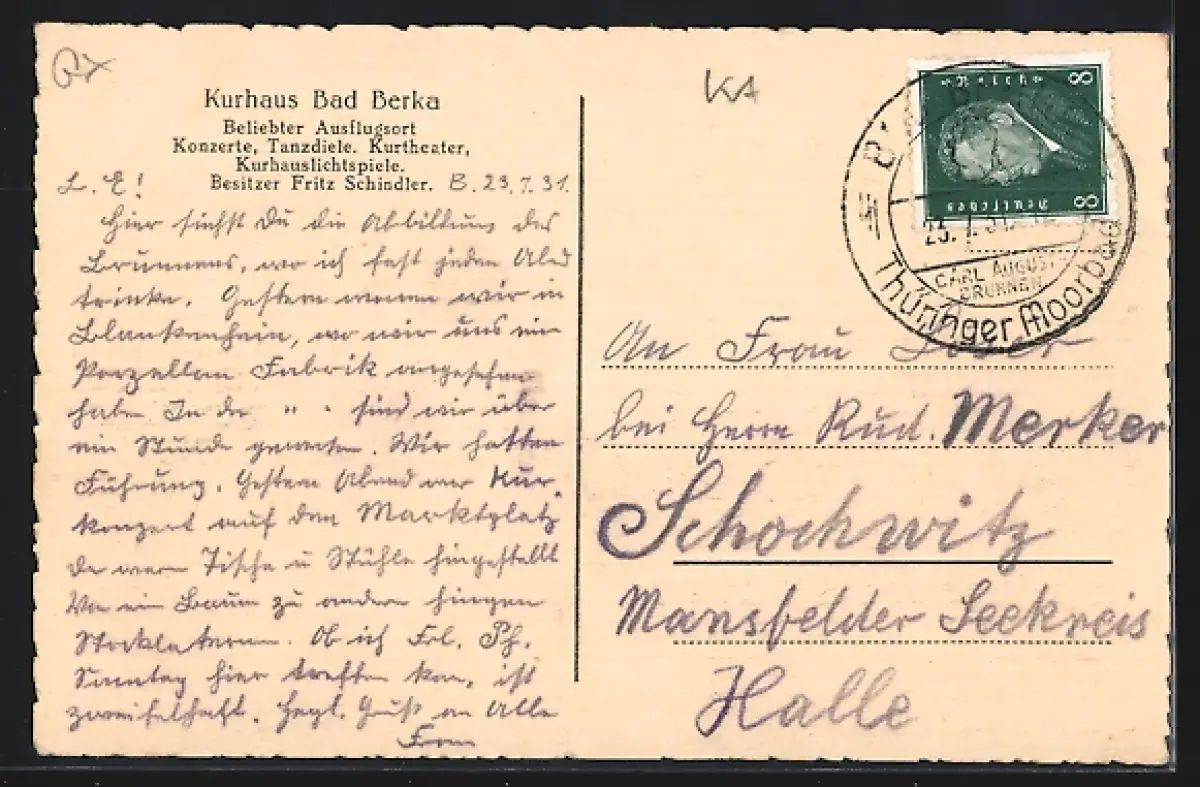 KA
Kurhaus Bad Berka
Beliebter Ausflugsort
Konzerte, Tanzdiele. Kurtheater,
Kurhauslichtspiele.
Besitzer Fritz Schindler.
L. E! B. 23.7.31.
Hier siehst du die Abbildung des
Brunnens, wo ich fast jeden Abd
trinke. Gestern waren wir in
Blankenhein, wo wir uns ein
Porzellan Fabrik angesehen
haben In der " " sind wir über
ein Stunde gewesen. Wir hatten
Führung. Gestern Abend war Kur-
konzert auf den Marktplatz
da waren Tische u Stühle hingestellt
Von ein Baum zu andern hingen
Stocklaternen. Ob ich Frl. Ph.
Sonntag hier treffen kan, ist
zweifelhaft. Hrzl. Gruß an Alle
8 Deutsches 8
23. 7. 31
CARL AUGUST-
BRUNNEN
Thüringer Moorbad
An Frau
bei Herrn Rud. Merker
Schochwitz
Mansfelder Seekreis
Halle